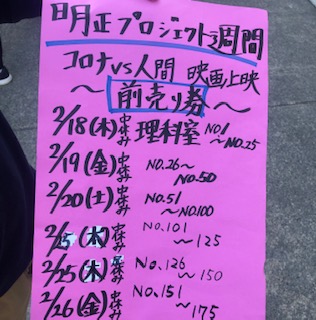 明正プロジェクト3週間
コロナvs人間 映画上映
〜前売り券〜
2/18(木)中休み 理科室 No.1〜No.25
2/19(金)中休み No.26〜No.50
2/20(土)中休み No.51〜No.100
2/25(木)中休み No.101〜125
2/25(木)昼休み No.126〜150
2/26(金)中休み No.151〜175